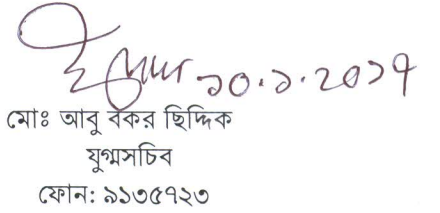 ১০.১.২০১৭
মোঃ আবু বকর ছিদ্দিক
যুগ্মসচিব
ফোন: ৯১৩৫৭২৩